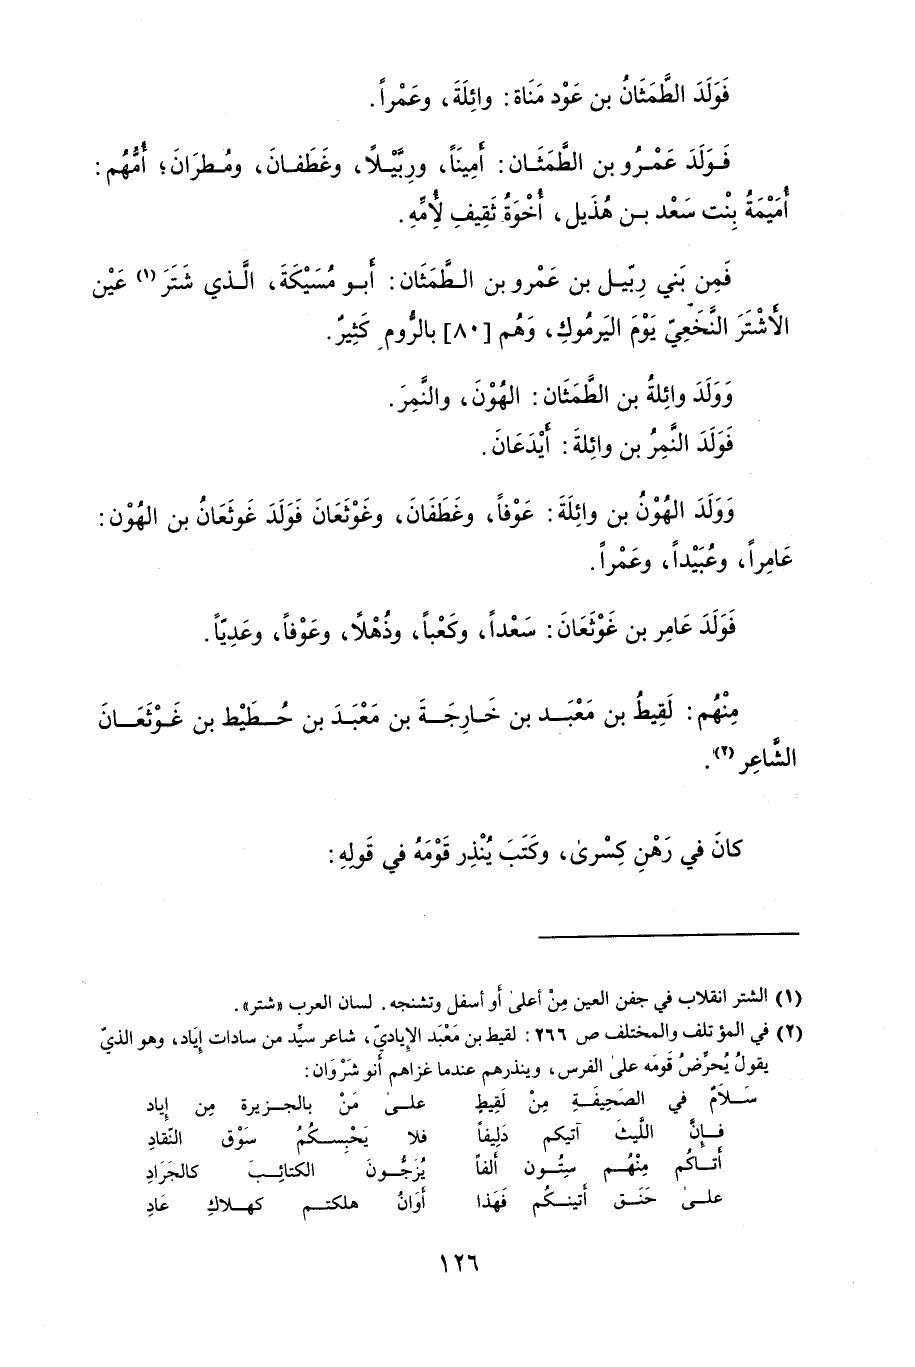 فَوَلَدَ الطَّمَثَانُ بن عَوْد مَنَاة: وائِلَةَ، وعَمْراً.
فَوَلَدَ عَمْرُو بن الطَّمَثَان: أَمِينَاً، ورِبَّيْلاً، وغَطَفانَ، ومُطرَانَ؛ أُمُّهُم:
أُمَيْمَةُ بِنْت سَعْد بن هُذَيل، أُخْوَةُ ثَقِيفِ لِأُمِّهِ.
فَمِن بَني رِبَّيل بن عَمْرو بن الطَّمَثَان: أَبو مُسَيْكَةَ، الَّذي شَتَرَ (١) عَيْن
الأَشْتَرَ النَّخَعِيّ يَوْمَ اليَرمُوكِ، وَهُم [٨٠] بالرُّوم كَثِيرٌ.
وَوَلَدَ وائِلةُ بن الطَّمَثَان: الهُوْنَ، والنَّمِرَ.
فَوَلَدَ النَّمِرُ بن وائِلةَ: أَيْدَعَانَ.
وَوَلَدَ الهُوْنُ بن وائِلَةَ: عَوْفاً، وغَطَفَانَ، وغَوْثَعَانَ فَولَدَ غَوثَعَانُ بن الهُوْن:
عَامِراً، وعُبَيْداً، وعَمْراً.
فَوَلَدَ عَامِر بن غَوْثَعَانَ: سَعْداً، وكَعْباً، وذُهْلاً، وعَوْفاً، وعَدِيّاً.
مِنْهُم: لَقِيطُ بن مَعْبَد بن خَارِجَةَ بن مَعْبَدَ بن حُطَيْط بن غَوْثَعَان
الشَّاعِر (٢).
كانَ في رَهْنِ كِسْرىٰ، وكَتَبَ يُنْذِر قَوْمَهُ في قَولِهِ:
(١) الشتر انقلاب في جفن العين مِنْ أعلىٰ أو أسفل وتشنجه. لسان العرب «شتر».
(٢) في المؤتلف والمختلف ص ٢٦٦: لقيط بن مَعْبَد الإياديّ، شاعر سيِّد من سادات إيَاد، وهو الذيّ
يقولُ يُحرِّضُ قومَه علىٰ الفرس، وينذرهم عندما غزاهم أنو شَرْوَان:
سَلاَمٌ في الصَحِيفَةِ مِنْ لَقِيطٍ علىٰ مَنْ بالجَزيرة مِن إياد
فإنَّ اللَّيثَ آتيكم دَلِيفاً فلا يَحْبِسكُمُ سَوْق النّقادِ
أَتاكُم مِنْهُم سِتُون ألفاً يُزَجُّونَ الكتائِبَ كالجَرَادِ
علىٰ حَنَق أَتينكُم فَهَذا أَوَانُ هلكتم كهلاكِ عَادِ
١٢٦